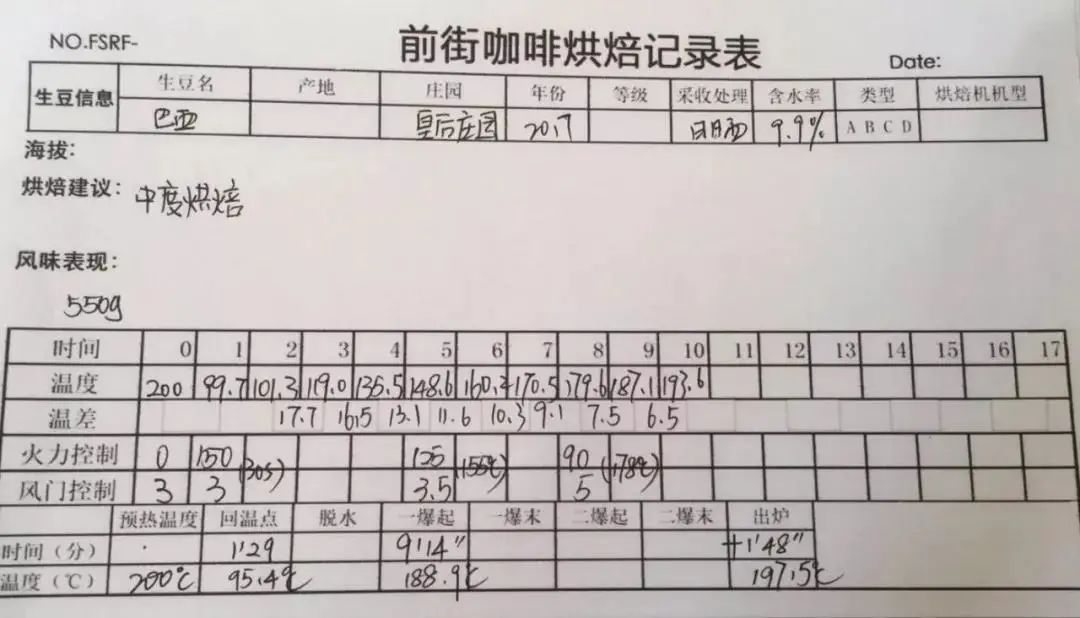 NO.FSRF- 前街咖啡烘焙记录表 Date:
生豆信息 生豆名 产地 庄园 年份 等级 采收处理 含水率 类型 烘焙机机型
巴亚 皇后庄园 2017 日晒 9.9% A B C D
海拔:
烘焙建议: 中度烘焙
风味表现:
550g
时间 0 1 2 3 4 5 6 7 8 9 10 11 12 13 14 15 16 17
温度 200 99.7 101.3 119.0 135.5 148.6 160.2 170.5 179.6 187.1 193.6
温差 17.7 16.5 13.1 11.6 10.3 9.1 7.5 6.5
火力控制 0 150 (30s) 125 (155℃) 90 (178℃)
风门控制 3 3 3.5 5
预热温度 回温点 脱水 一爆起 一爆末 二爆起 二爆末 出炉
时间（分） 1'29 9'14" +1'48"
温度（℃） 200℃ 95.4℃ 188.9℃ 197.5℃